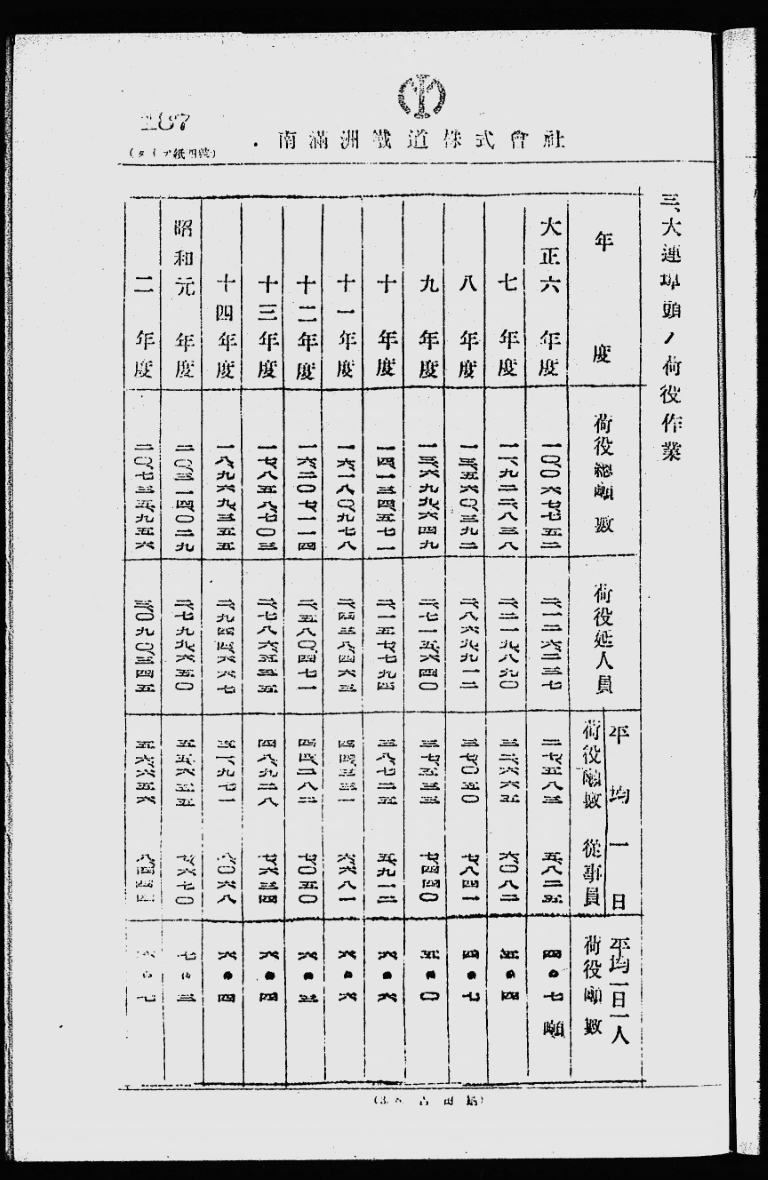 287
(タイプ紙四號)
南滿洲鐵道株式會社
三、大連埠頭ノ荷役作業
年度 荷役總噸數 荷役延人員 平均一日 荷役噸數 從事員 平均一日一人荷役噸數
大正六年度 一〇、〇六七、七五二 二、一二六、二三七 二七、五八三 五、八二五 四・七噸
七年度 一一、九二二、八三八 二、二一九、八九〇 三二、六六五 六、〇八二 五・四
八年度 一三、五六〇、三九二 二、八六九、九一二 三七、〇五〇 七、八四一 四・七
九年度 一三、六九九、六四九 二、七一五、六四〇 三七、五三三 七、四四〇 五・〇
十年度 一四、一三四、五七一 二、一五七、七九四 三八、七二五 五、九一二 六・六
十一年度 一六、一八〇、九七八 二、四三八、四六三 四四、三三一 六、六八一 六・六
十二年度 一六、二〇七、一一四 二、五八〇、四七一 四四、二八二 七、〇五〇 六・三
十三年度 一七、八五八、七〇三 二、七八六、五三五 四八、九二八 七、六三四 六・四
十四年度 一八、九六九、三五五 二、九四四、六六七 五一、九七一 八、〇六八 六・四
昭和元年度 二〇、三一四、〇二九 二、七九九、六五〇 五五、六五五 七、六七〇 七・三
二年度 二〇、七三五、九五六 三、〇九〇、三四五 五六、六五六 八、四四四 六・七